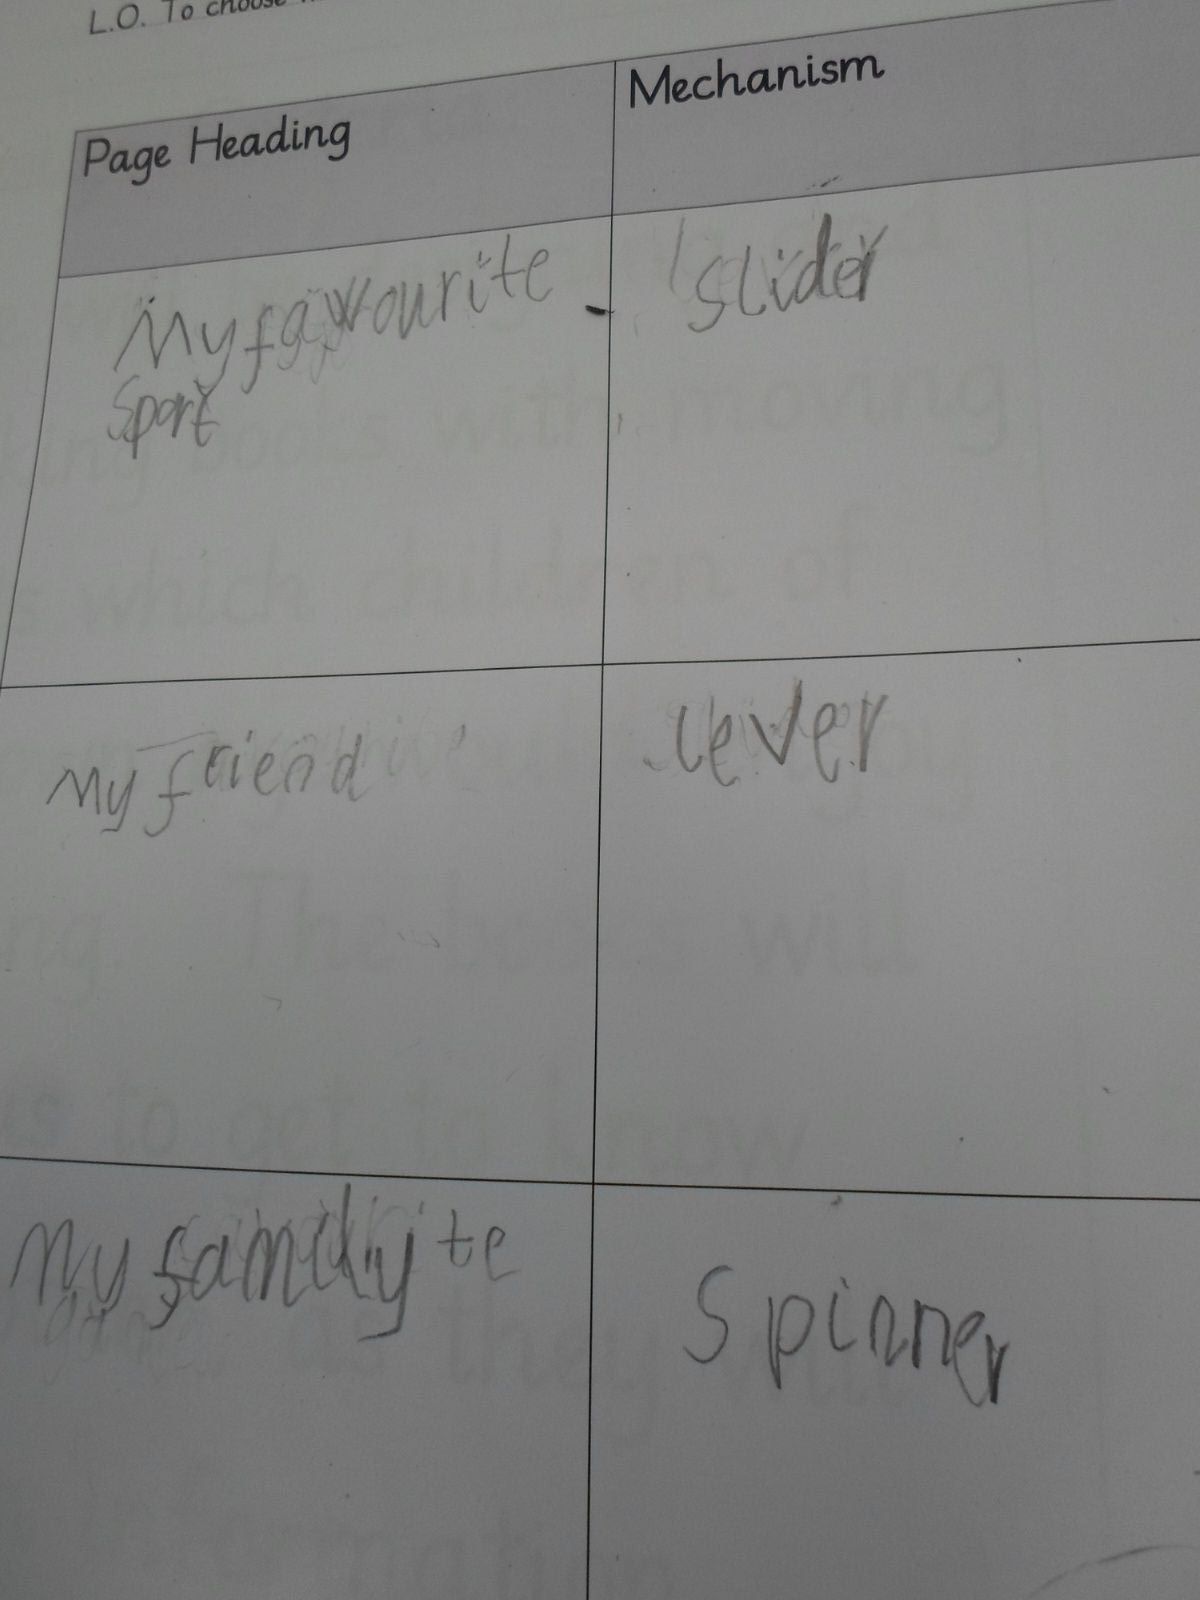 L.O. To choose
Page Heading
Mechanism
My favourite
Sport
slider
My friend
lever
My family te
Spinner